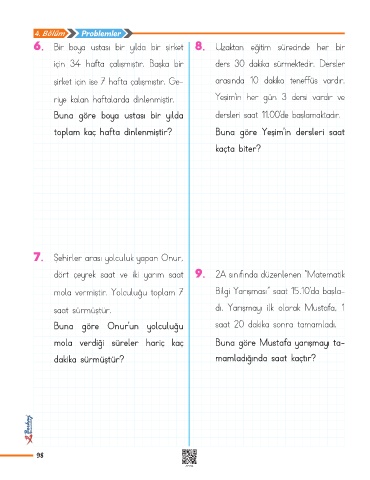 4. Bölüm Problemler
6. Bir boya ustası bir yılda bir şirket
için 34 hafta çalışmıştır. Başka bir
şirket için ise 7 hafta çalışmıştır. Ge-
riye kalan haftalarda dinlenmiştir.
Buna göre boya ustası bir yılda
toplam kaç hafta dinlenmiştir?
7. Şehirler arası yolculuk yapan Onur,
dört çeyrek saat ve iki yarım saat
mola vermiştir. Yolculuğu toplam 7
saat sürmüştür.
Buna göre Onur'un yolculuğu
mola verdiği süreler hariç kaç
dakika sürmüştür?
8. Uzaktan eğitim sürecinde her bir
ders 30 dakika sürmektedir. Dersler
arasında 10 dakika teneffüs vardır.
Yeşim'in her gün 3 dersi vardır ve
dersleri saat 11.00'de başlamaktadır.
Buna göre Yeşim'in dersleri saat
kaçta biter?
9. 2A sınıfında düzenlenen "Matematik
Bilgi Yarışması" saat 15.10'da başla-
dı. Yarışmayı ilk olarak Mustafa, 1
saat 20 dakika sonra tamamladı.
Buna göre Mustafa yarışmayı ta-
mamladığında saat kaçtır?
98